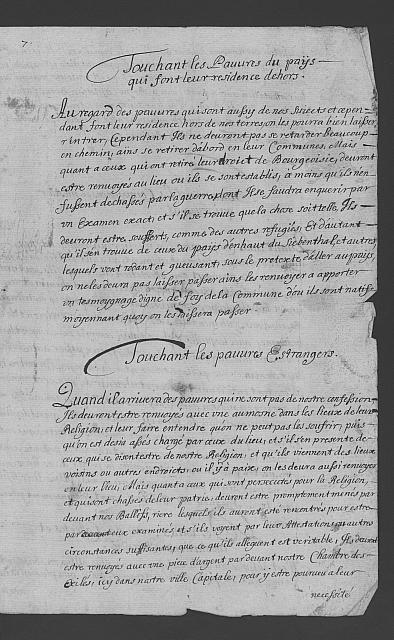 7.
Touchant les Pauures du païs
qui font leur residence dehors.
Au regard des pauures qui sont aussy de nos sujects et cepen-
dant font leur residence hors de nos terres on les pourra bien laisser
r'intrer, Cependant Ils ne deuront pas se retarder beaucoup
en chemin, ains se retirer d'abord en leur Communes, Mais
quant a ceux qui ont retiré leur droict de Bourgeoisie, deuront
estre renuoyes au lieu ou ils se sont establis, a moins qu'ils n'en
fussent dechassés par la guerre, dont Il se faudra enquerir par
vn Examen exact, et s'il se trouue que la chose soit telle, Ils
deuront estre soufferts, comme des autres refugies, Et d'autant
qu'il s'en trouue de ceux du païs d'enhaut du Siebenthal, et autres,
lesquels vont rodant et gueusant, sous le pretexte d'aller au païs,
on ne les deura pas laisser passer ains les renuoyer a apporter
vn tesmoygnage digne de foy de la Commune d'ou ils sont natifs
moyennant quoy on les laissera passer
Touchant les pauures Estrangers.
Quand il arriuera des pauures qui ne sont pas de nostre confession
Ils deuront estre renuoyes auec vne aumosne dans les lieux de leur
Religion, et leur faire entendre qu'on ne peut pas les soufrir, puis
qu'on est desia assés chargé par ceux du lieu, et s'il s'en presente de
ceux qui se disent estre de nostre Religion, et qu'ils viennent des lieux
voisins ou autres endroicts, ou il y a paix, on les deura aussi renuoyer
en leur lieu, Mais quant a ceux qui sont persecutés pour la Religion,
et qui sont chassés de leur patrie, deuront estre promptement menés par
deuant nos Ballifs, riere lesquels ils auront esté rencontrés pour estre
par eux examinés, et s'ils voyent par leur Attestations, ou autres
circonstances suffisantes, que ce qu'ils alleguent est veritable, Ils deuront
estre renuoyes auec vne piece d'argent par deuant nostre Chambre des
Exilés, icy dans nostre ville Capitale, pour y estre pourueu a leur
necessité